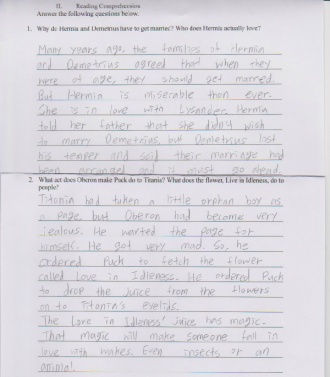 II. Reading Comprehension
Answer the following questions below.
1. Why do Hermia and Demetrius have to get married? Who does Hermia actually love?
Many years ago, the families of Hermia
and Demetrius agreed that when they
were of age, they should get marred.
But Hermia is miserable than ever.
She is in love with Lysander. Hermia
told her father that she didn't wish
to marry Demetrius, but Demetrius lost
his temper and said their marriage had
been arranged and it must go ahead.
2. What act does Oberon make Puck do to Titania? What does the flower, Live in Idleness, do to
people?
Titania had taken a little orphan boy as
a page, but Oberon had become very
jealous. He wanted the page for
himself. He got very mad. So, he
ordered Puck to fetch the flower
called Love in Idleness. He ordered Puck
to drop the juice from the flowers
on to Titania's eyelids.
The Love in Idleness' juice has magic.
That magic will make someone fall in
love with makes. Even insects or an
animal.